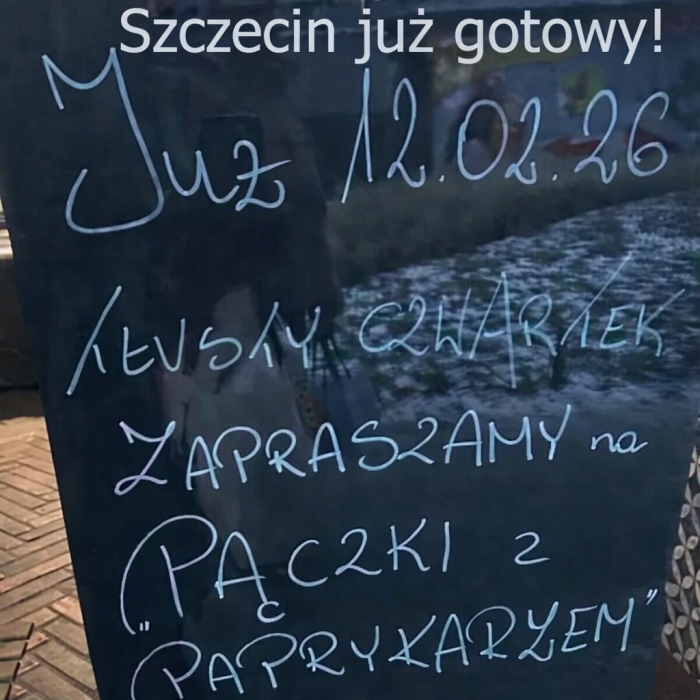 Szczecin już gotowy!
Już 12.02.26
TŁUSTY CZWARTEK
ZAPRASZAMY na
„PĄCZKI z
PAPRYKARZEM”